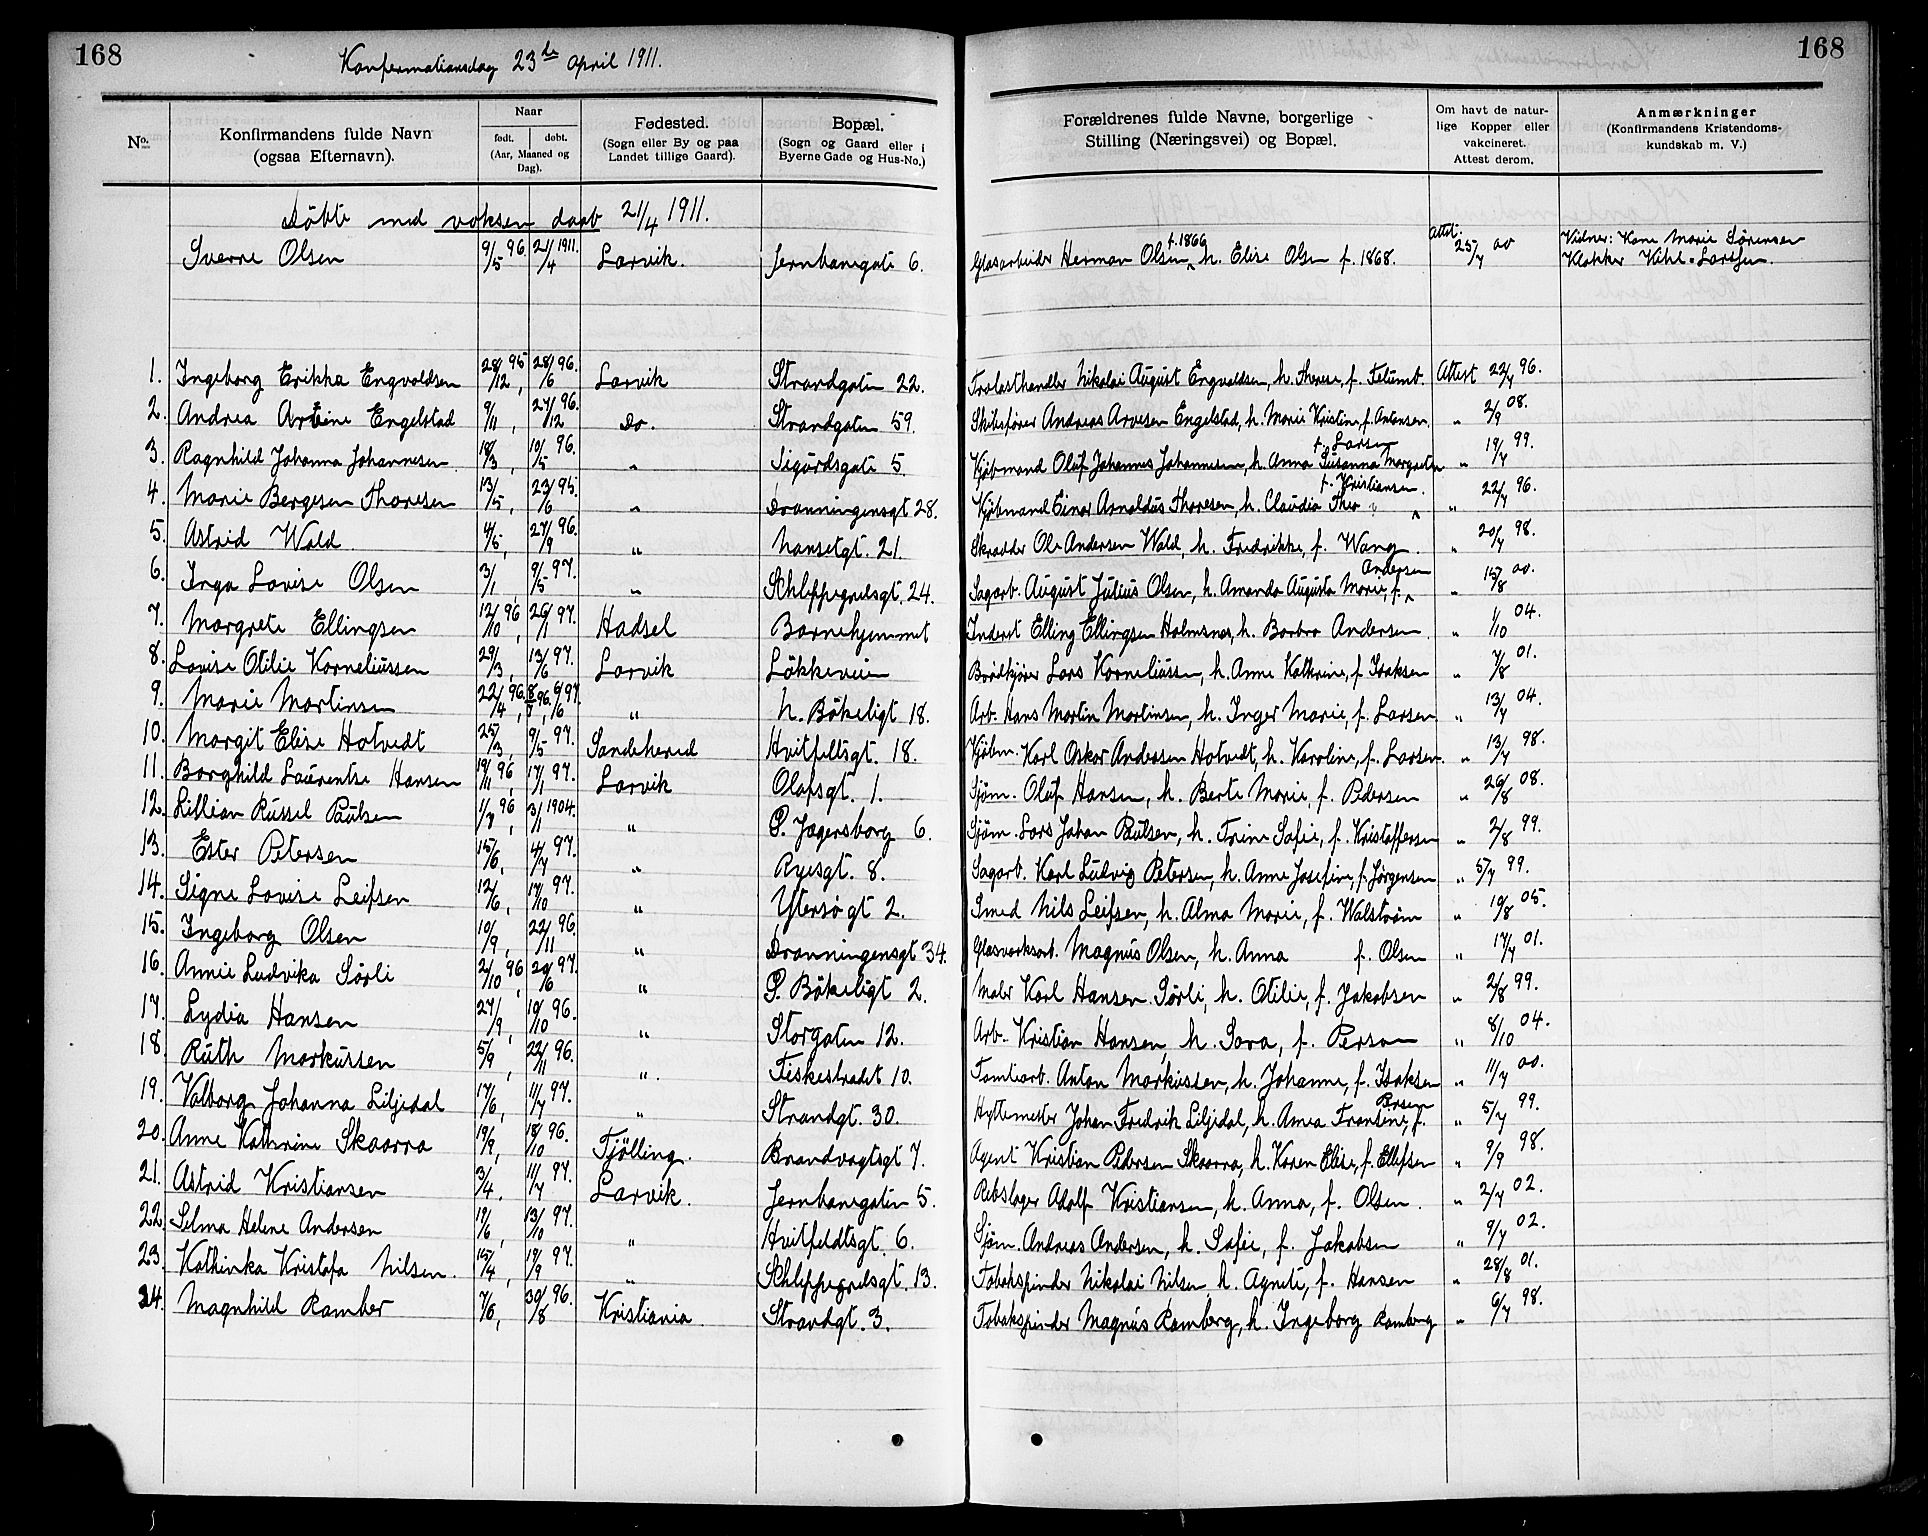 168
Konfermationsdag 23de April 1911.
168
No.
Konfirmandens fulde Navn
(ogsaa Efternavn).
Naar
født. døbt.
(Aar, Maaned og Dag).
Fødested.
(Sogn eller By og paa
Landet tillige Gaard).
Bopæl.
(Sogn og Gaard eller i
Byerne Gade og Hus-No.)
Forældrenes fulde Navne, borgerlige
Stilling (Næringsvei) og Bopæl.
Om havt de natur-
lige Kopper eller
vakcineret.
Attest derom.
Anmærkninger
(Konfirmandens Kristendoms-
kundskab m. V.)
Døbte med voksen daab 21/4 1911.
Sverre Olsen 9/5 96. 21/4 1911. Larvik. Jernbanegate 6. Glasarbeider Herman Olsen f. 1866, h. Elise Olsen f. 1868. Attst. 25/7 00 Vidner: Kone Marie Sørensen
Klokker Kihl-Larssen.
1. Ingeborg Erikka Engvoldsen 28/12 95, 28/6 96. Larvik Strandgaten 22. Trælasthandler Nikolai August Engvoldsen, h. Therese, f. Felumb. Attest 22/7 96.
2. Andrea Arvine Engelstad 9/11, 27/12 96. Do. Strandgaten 59. Skibsfører Andreas Arvesen Engelstad, h. Marie Kristine, f. Antonsen. " 2/9 08.
3. Ragnhild Johanna Johannesen 18/3, 10/5 96. " Sigurdsgate 5 Kjøbmand Oluf Johannes Johannesen, h. Anna Susanna Margrete f. Larsen " 19/7 99.
4. Marie Bergesen Thoresen 13/5, 23/6 95. " Dronningensgt 28. Kjøbmand Einar Arnoldus Thoresen, h. Claudia Thea f. Kristiansen. " 22/7 96.
5. Astrid Wold 4/5, 27/9 96. " Nansetgt. 21. Skrædder Ole Andersen Wold, h. Fredrikke, f. Wang. " 20/7 98.
6. Inga Lovise Olsen 3/1, 9/5 97. " Schleppegrelsgt. 24. Sagarb. August Julius Olsen, h. Amanda Augusta Marie, f. Andersen " 15/8 00.
7. Margrete Ellingsen 12/10 96, 26/1 97. Hadsel Barnehjemmet Inderst Elling Ellingsen Holmsnes, h. Barbro Andersen. " 1/10 04.
8. Lovise Otilie Korneliussen 29/3, 13/6 97. Larvik Løkkeveien Bordkjører Lars Korneliussen, h. Anne Kathrine, f. Isaksen " 7/8 01.
9. Marie Martinsen 22/4 96, 6/6 97. " N. Bøkeligt 18. Arb. Hans Martin Martinsen, h. Inger Marie, f. Larsen " 13/7 04.
10. Margit Elise Hotvedt 25/3, 9/5 97. Sandeherred Hvitfeltsgt. 18. Kjøbm. Karl Oskar Andersen Hotvedt, h. Karoline, f. Larsen. " 13/7 98.
11. Borghild Laurentse Hansen 19/11 96, 17/1 97. Larvik Olafsgt. 1. Sjøm. Oluf Hansen, h. Berte Marie, f. Pedersen " 26/8 08.
12. Lillian Russel Paulsen 1/7 96, 3/1 1904. " P. Jagersborg 6. Sjøm. Lars Johan Paulsen, h. Trine Sofie, f. Kristoffersen " 2/8 99.
13. Ester Petersen 15/6, 4/7 97. " Ryesgt. 8. Sagarb. Karl Ludvig Petersen, h. Anne Josefine, f. Jørgensen " 5/7 99.
14. Signe Lovise Leifsen 12/6, 17/10 97. " Ytersøgt 2. Smed Nils Leifsen, h. Alma Marie, f. Walstrøm " 19/8 05.
15. Ingeborg Olsen 10/9, 22/11 96. " Dronningensgt 34. Glasværksarb. Magnus Olsen, h. Anna f. Olsen " 17/7 01.
16. Annie Ludvika Sørli 2/10 96, 20/6 97. " P. Bøkeligt 2. Maler Karl Hansen Sørli, h. Otilie, f. Jakobsen " 2/8 99.
17. Lydia Hansen 27/9, 19/10 96. " Storgaten 12. Arb. Kristian Hansen, h. Sara, f. Person " 8/10 04.
18. Ruth Markussen 5/9, 22/11 96. " Fiskestrædet 10. Tomtearb. Anton Markussen, h. Johanne, f. Isaksen " 11/7 00.
19. Valborg Johanna Liljedal 17/6, 11/7 97. " Strandgt. 30. Hyttemester Johan Fredrik Liljedal, h. Amea Frantine, f. Persen " 5/7 99.
20. Anne Kathrine Skaarra 19/9, 18/10 96. Tjølling. Brandvagtsgt 7. Agent Kristian Pedersen Skaarra, h. Karen Elise, f. Ellefsen " 9/9 98.
21. Astrid Kristiansen 3/4, 11/7 97. Larvik. Jernbanegaten 5. Rebslager Adolf Kristiansen, h. Anna, f. Olsen. " 2/7 02.
22. Selma Helene Andersen 19/6, 13/10 97. " Hvitfeldtsgt. 6. Sjøm. Andreas Andersen, h. Sofie, f. Jakobsen " 9/7 02.
23. Kathinka Kristofa Nilsen. 15/4, 19/9 97. " Schleppegrelsgt. 13. Tobakspinder Nikolai Nilsen, h. Agnete, f. Hansen " 28/8 01.
24. Magnhild Ramber 7/6, 30/8 96. Kristiania. Strandgt. 3. Tobakspinder Magnus Ramberg, h. Ingeborg Ramberg " 6/7 98.